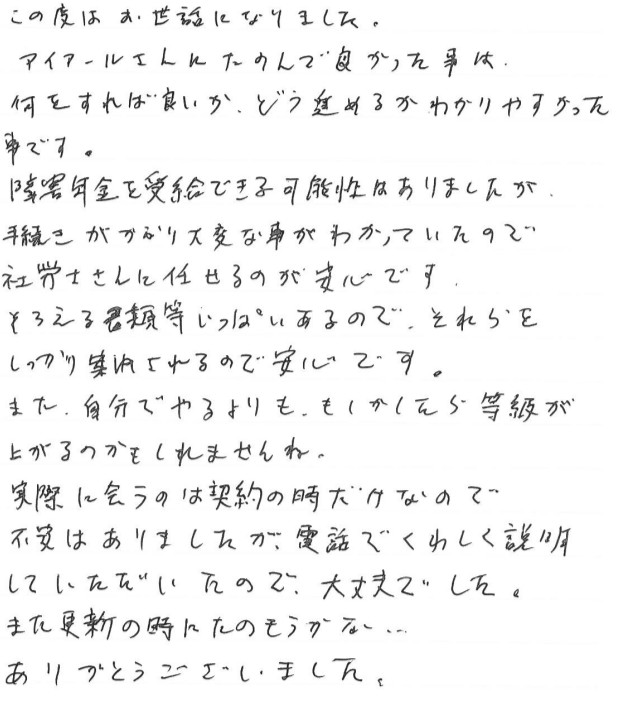 この度はお世話になりました。
アイアールさんにたのんで良かった事は、
何をすれば良いか、どう進めるかわかりやすかった
事です。
障害年金を受給できる可能性はありましたが、
手続きがかなり大変な事がわかっていたので
社労士さんに任せるのが安心です。
そろえる書類等いっぱいあるので、それらを
しっかり案内されるので安心です。
また、自分でやるよりも、もしかしたら等級が
上がるのかもしれませんね。
実際に会うのは契約の時だけなので
不安はありましたが、電話でくわしく説明
していただいたので、大丈夫でした。
また更新の時にたのもうかな…
ありがとうございました。